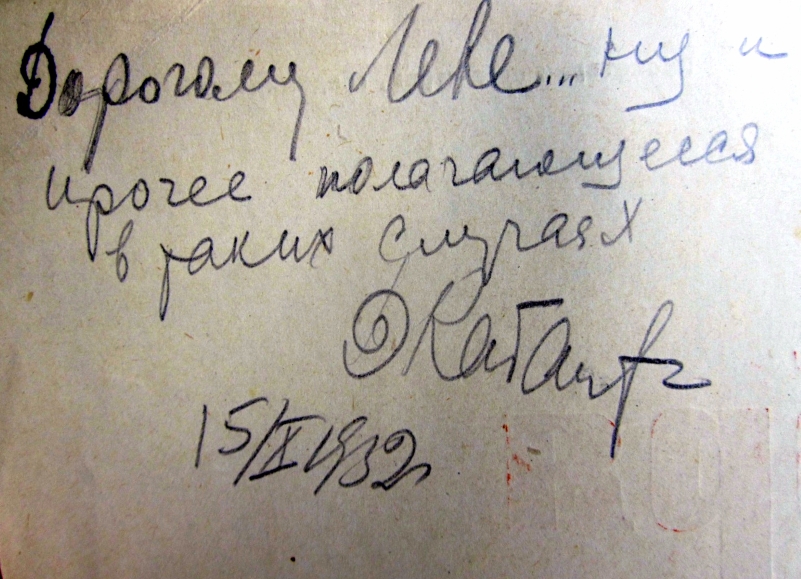 Дорогому Леве... ну и
прочее полагающееся
в таких случаях
15/X 1932